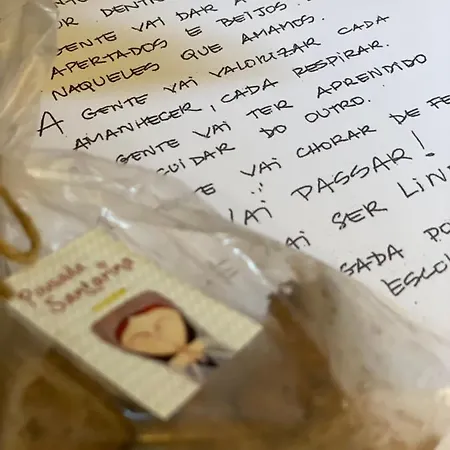 GENTE VAI DAR A
APERTADOS E BEIJOS
NAQUELES QUE AMAMOS.
A GENTE VAI VALORIZAR CADA
AMANHECER, CADA RESPIRAR.
GENTE VAI TER APRENDIDO
CUIDAR DO OUTRO.
VAI CHORAR DE FE
VAI PASSAR!
AI SER LIN
GADA PO
ESCO
Pousada
Santorina